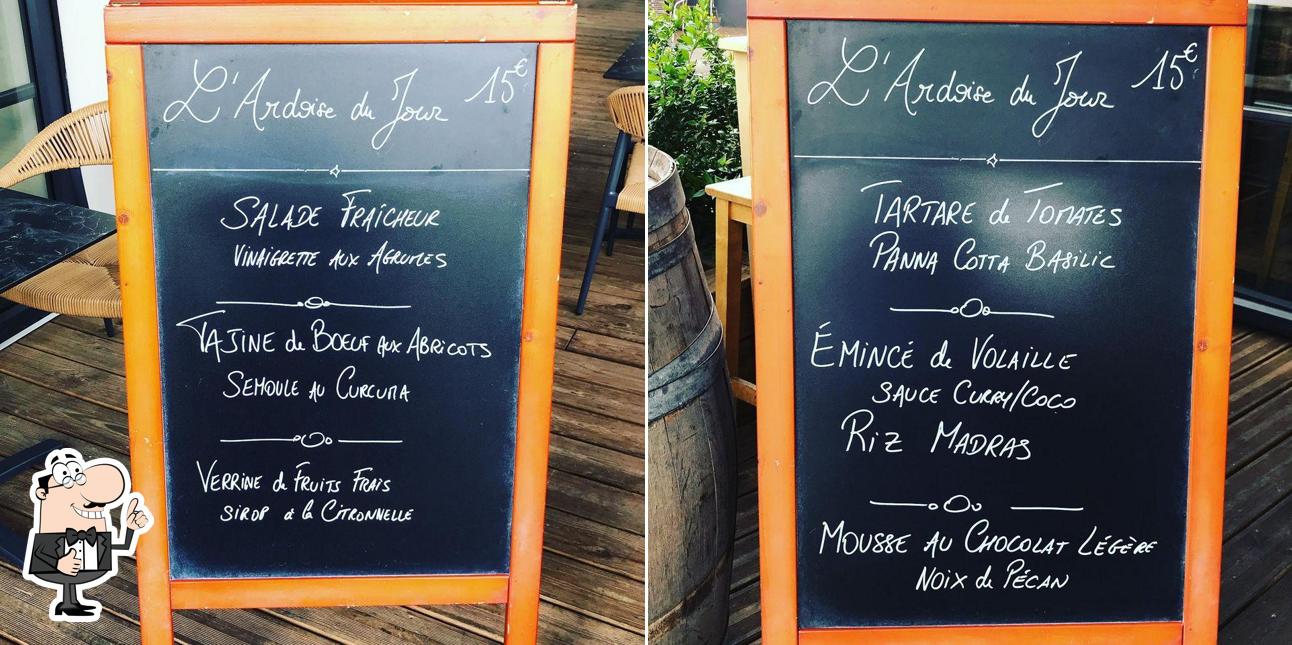 L'Ardoise du Jour 15€
SALADE FRAÎCHEUR
VINAIGRETTE AUX AGRUMES
TAJINE de BOEUF AUX ABRICOTS
SEMOULE AU CURCUMA
VERRINE de FRUITS FRAIS
SIROP à la CITRONNELLE
L'Ardoise du Jour 15€
TARTARE de TOMATES
PANNA COTTA BASILIC
ÉMINCÉ de VOLAILLE
SAUCE CURRY/COCO
RIZ MADRAS
MOUSSE AU CHOCOLAT LÉGÈRE
NOIX de PÉCAN